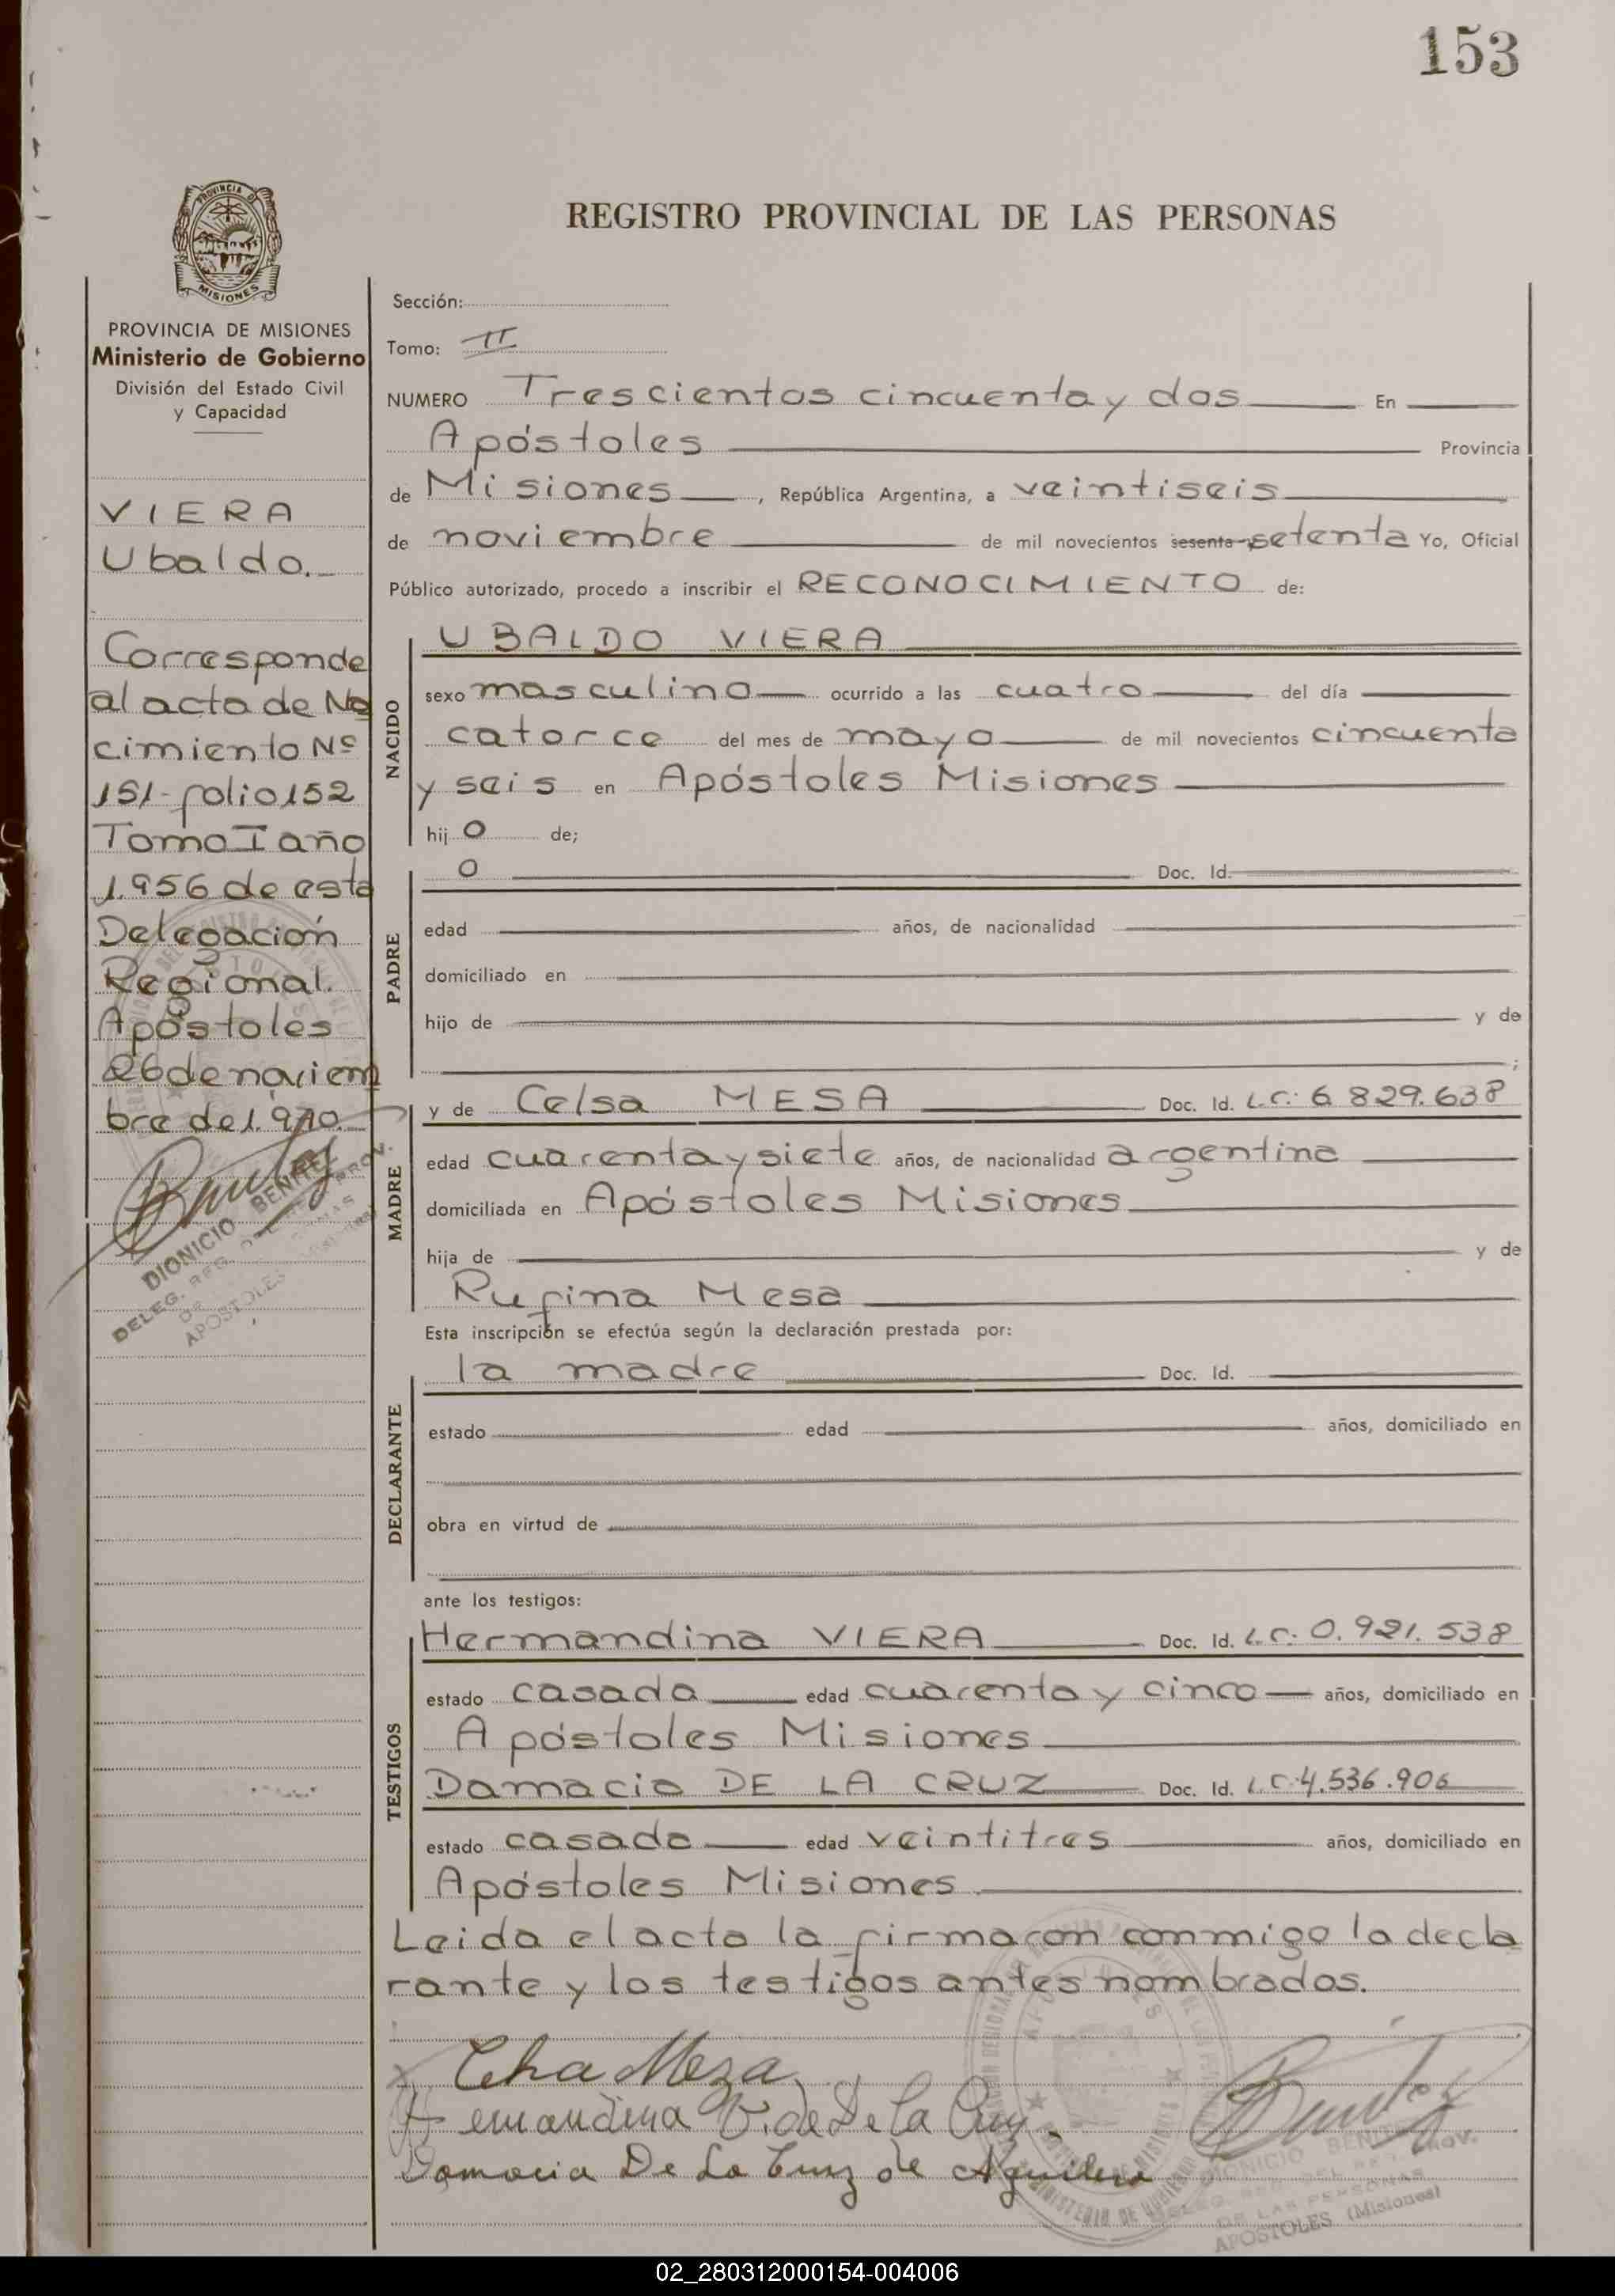 153
PROVINCIA DE MISIONES
REGISTRO PROVINCIAL DE LAS PERSONAS
PROVINCIA DE MISIONES
Ministerio de Gobierno
División del Estado Civil
y Capacidad
VIERA
Ubaldo.
Corresponde
al acta de Na
cimiento Nº
151-folio 152
Tomo I año
1.956 de esta
Delegación
Regional.
Apóstoles
26 de noviem
bre de 1.970.
DIONICIO BENITEZ
DELEG. REG. DEL REG. PROV.
DE LAS PERSONAS
APOSTOLES (Misiones)
Sección:
Tomo: II
NUMERO Trescientos cincuenta y dos En
Apóstoles Provincia
de Misiones, República Argentina, a veintiseis
de noviembre de mil novecientos sesenta setenta Yo, Oficial
Público autorizado, procedo a inscribir el RECONOCIMIENTO de:
NACIDO
UBALDO VIERA
sexo masculino ocurrido a las cuatro del día
catorce del mes de mayo de mil novecientos cincuenta
y seis en Apóstoles Misiones
hij o de;
PADRE
o Doc. Id.
edad años, de nacionalidad
domiciliado en
hijo de y de
;
MADRE
y de Celsa MESA Doc. Id. L.C: 6.829.638
edad cuarenta y siete años, de nacionalidad argentina
domiciliada en Apóstoles Misiones
hija de y de
Rufina Mesa
Esta inscripción se efectúa según la declaración prestada por:
DECLARANTE
la madre Doc. Id.
estado edad años, domiciliado en
obra en virtud de
ante los testigos:
TESTIGOS
Hermandina VIERA Doc. Id. L.C: 0.921.538
estado casada edad cuarenta y cinco años, domiciliado en
Apóstoles Misiones
Damacia DE LA CRUZ Doc. Id. L.C: 4.536.906
estado casada edad veintitres años, domiciliado en
Apóstoles Misiones
Leida el acta la firmaron conmigo la decla
rante y los testigos antes nombrados.
Celsa Meza
Hemandina V. de De la Cruz
Damacia De La Cruz de Aguilera
DIONICIO BENITEZ
DELEG. REG. DEL REG. PROV.
DE LAS PERSONAS
APOSTOLES (Misiones)
02_280312000154-004006